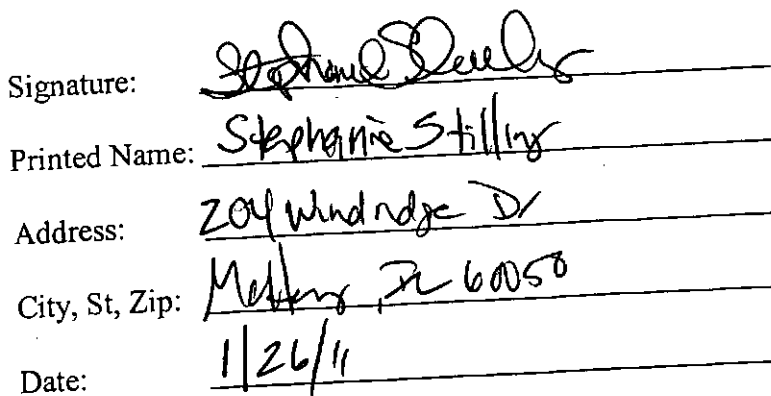 Signature: Stephanie
Printed Name: Stephanie Stilling
Address: 204 Windridge Dr
City, St, Zip: McHenry, IL 60050
Date: 1/26/11